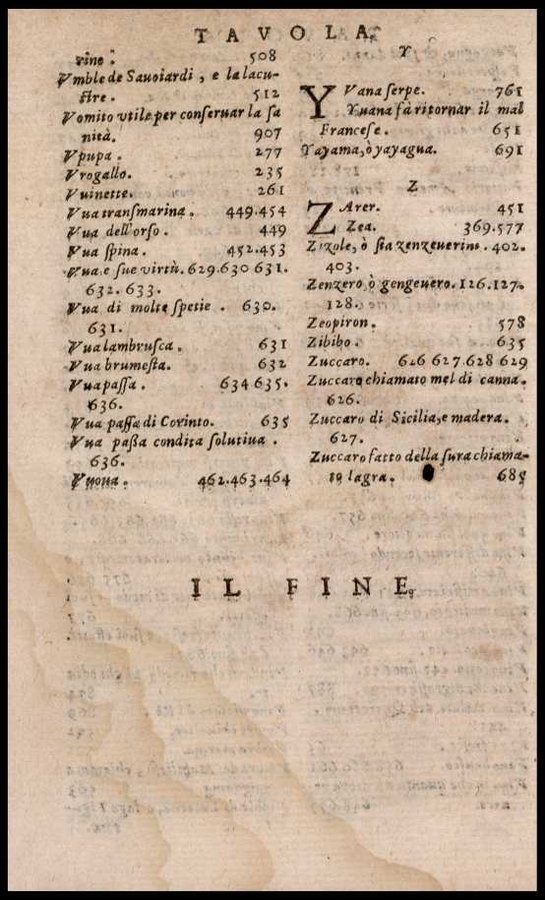 TAVOLA.
rino. 508
Vmble de Sauoiardi, e la lacu-
stre. 512
Vomito vtile per conseruar la sa
nità. 907
Vpupa. 277
Vrogallo. 235
Vuinette. 261
Vua transmarina. 449.454
Vua dell'orso. 449
Vua spina. 452.453
Vua e sue virtù. 629.630 631.
632. 633.
Vua di molte spetie. 630.
631.
Vua lambrusca. 631
Vua brumesta. 632
Vua passa. 634 635.
636.
Vua passa di Corinto. 635
Vua passa condita solutiua.
636.
Vuoua. 462.463.464
Y
YVana serpe. 761
Yuana fà ritornar il mal
Francese. 651
Yayama, ò yayagua. 691
Z
ZArer. 451
Zea. 369.577
Zizole, ò sia zenzeuerini. 402.
403.
Zenzero, ò gengeuero. 126.127.
128.
Zeopiron. 578
Zibibo. 635
Zuccaro. 626 627.628 629
Zuccaro chiamato mel di canna.
626.
Zuccaro di Sicilia, e madera.
627.
Zuccaro fatto della sura chiama-
to lagra. 685
IL FINE.